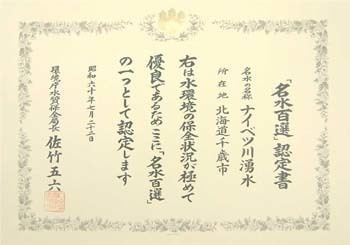 「名水百選」認定書
名水の名称 ナイベツ川湧水
所在地 北海道千歳市
右は水環境の保全状況が極めて
優良であるためここに「名水百選」
の一つとして認定します
昭和六十年七月二十二日
環境庁水質保全局長 佐竹五六